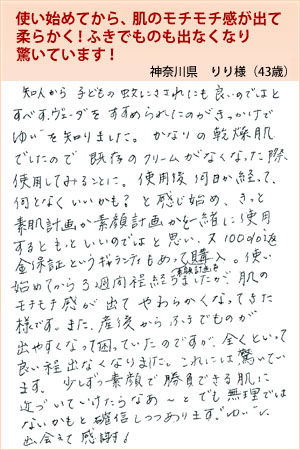 使い始めてから、肌のモチモチ感が出て
柔らかく！ふきでものも出なくなり
驚いています！
神奈川県　りり様（43歳）
知人から 子どもの虫にさされにも良いのでは と
すべすヴェーダを すすめられたのがきっかけで
ゆいを知りました。かなりの乾燥肌
でしたので 既存のクリームがなくなった際、
使用してみることに。使用後 何日か経って、
何となくいいかも？と感じ始め、きっと
素肌計画が素顔計画かを一緒に使用
するともっといいのではと思い、又100%返
金保証というギャランティもあって購入。使い
素顔計画を
始めてから3週間程経ちましたが、肌の
モチモチ感が出て やわらかくなってきた
様です。また、産後から ふきでものが
出やすくなって困っていたのですが、全くといって
良い程出なくなりました。これには驚いてい
ます。少しずつ素顔で勝負できる肌に
近づいていけたらなあ〜とても無理では
ないかもと確信しつつあります。"ゆい"に
出会えて感謝！